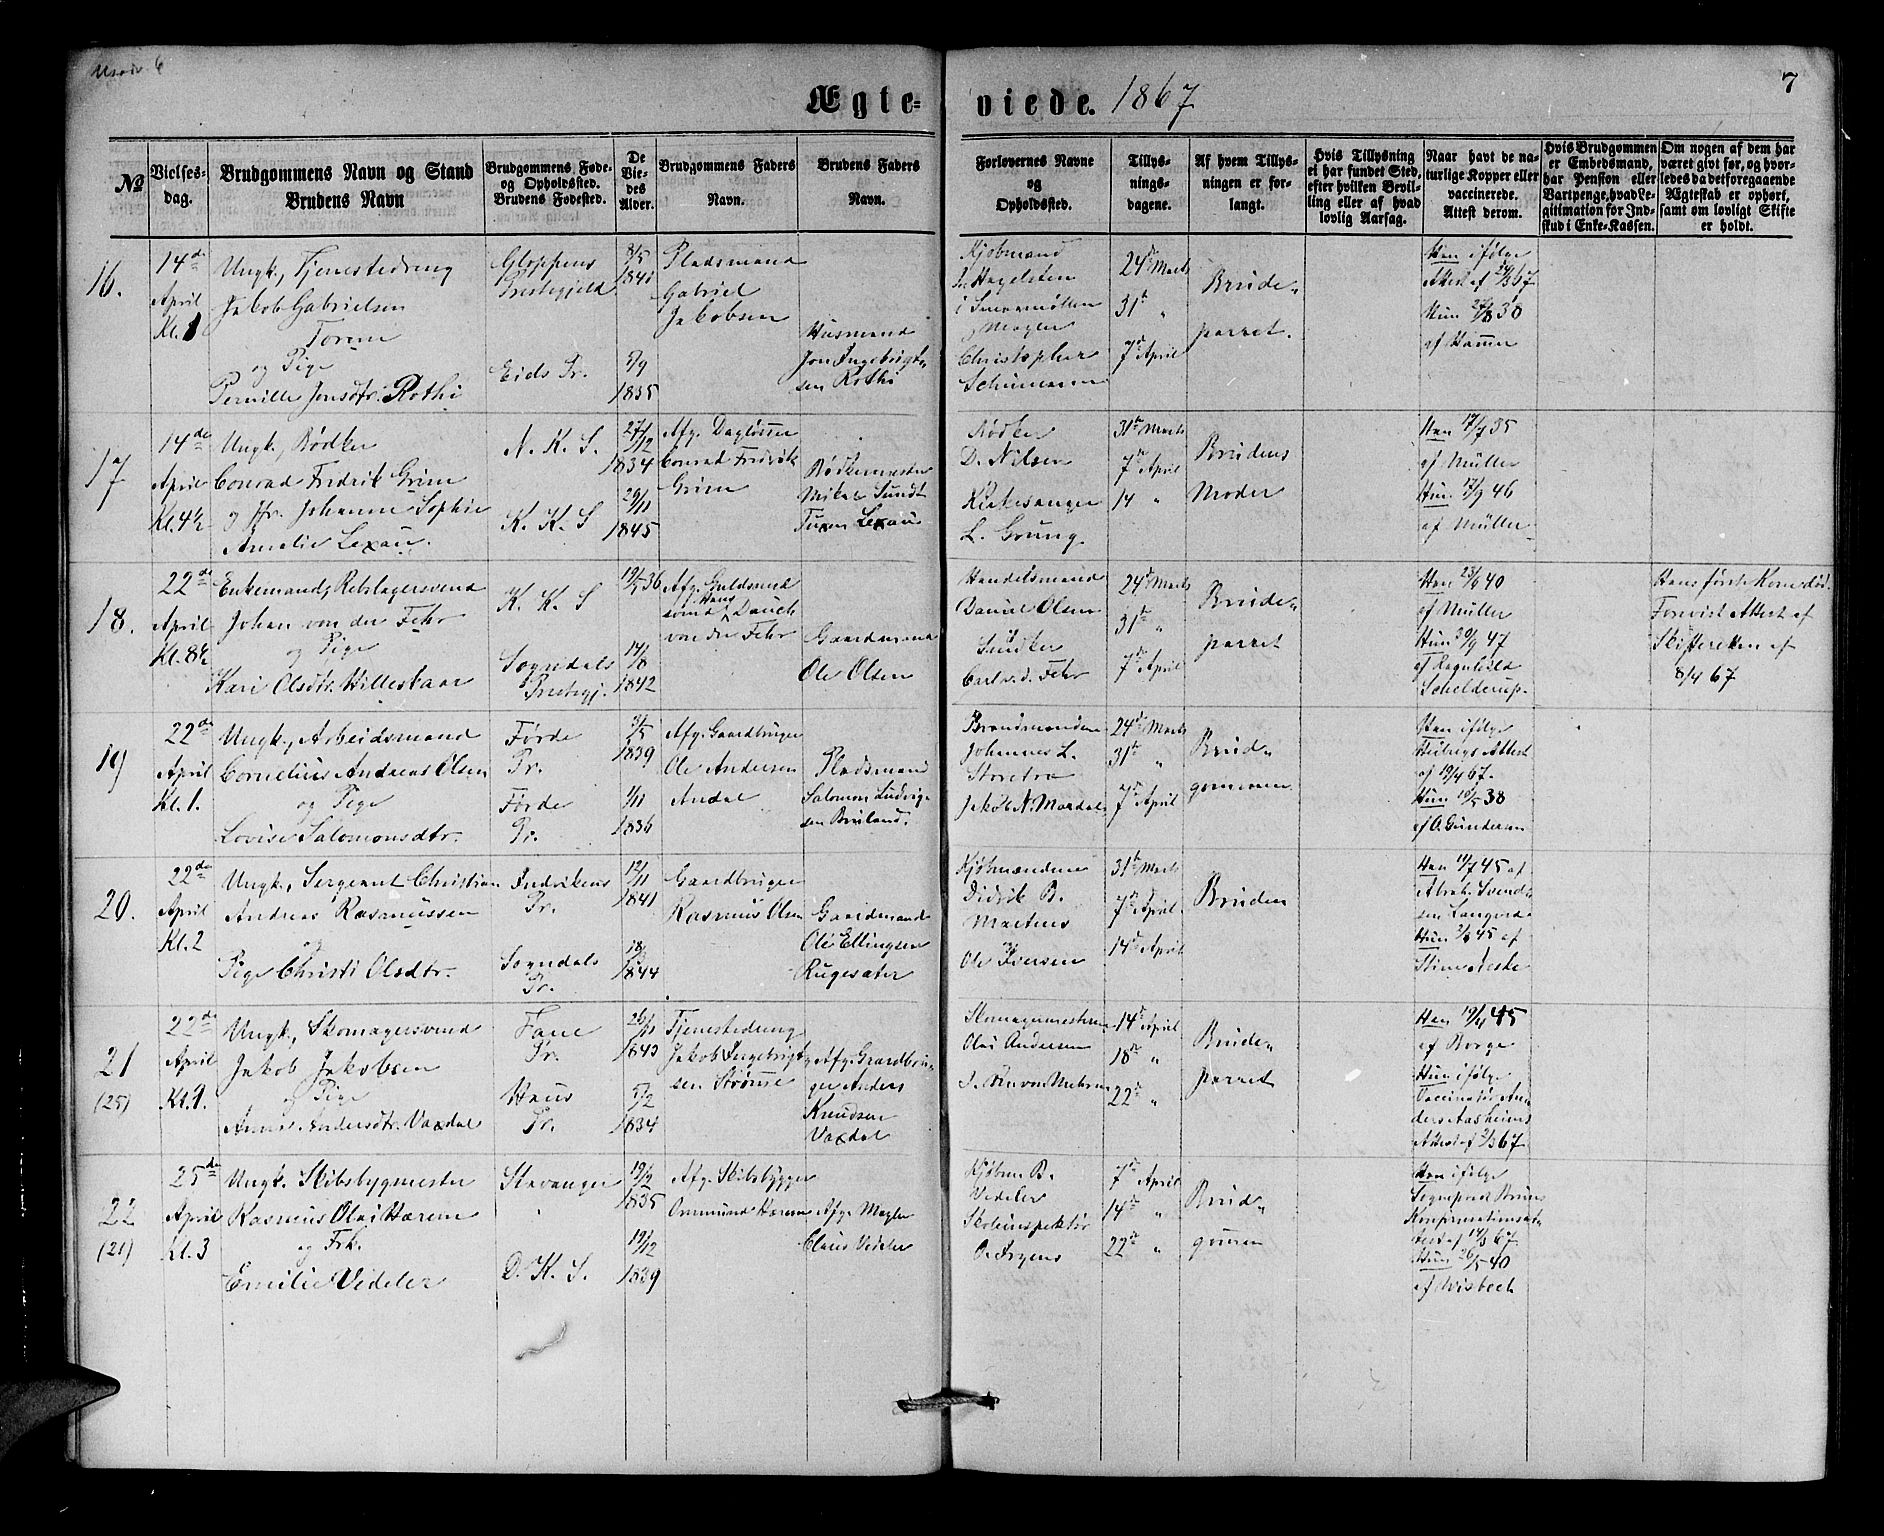 7
Ægte-
viede. 1867
№
Vielses-
dag.
Brudgommens Navn og Stand
Brudens Navn
Brudgommens Føde-
og Opholdssted.
Brudens Fødested.
De
Vie-
des
Alder.
Brudgommens Faders
Navn.
Brudens Faders
Navn.
Forlovernes Navne
og
Opholdssted.
Tillys-
nings-
dagene.
Af hvem Tillys-
ningen er for-
langt.
Hvis Tillysning
ei har fundet Sted,
efter hvilken Bevil-
ling eller af hvad
lovlig Aarsag.
Naar havt de na-
turlige Kopper eller
vaccinerede.
Attest derom.
Hvis Brudgommen
er Embedsmand,
har Pension eller
Vartpenge, hvad Le-
gitimation for Ind-
skud i Enke-Kassen.
Om nogen af dem har
været givt før, og hvor-
ledes da det foregaaende
Ægteskab er ophørt,
samt om lovligt Skifte
er holdt.
16.
14de
April
Kl. 1
Ungk., Tjenestedreng
Jakob Gabrielsen
og Pige
Pernille Jonsdtr. Rothi
Gloppens
Prestegjeld
Eids Pr.
8/5
1841
5/9
1835
Pladsmand
Gabriel
Jakobsen
Husmand
Jon Ingebrigt-
sen Rothi
Kjøbmand
Christopher
Schumann
24de Marts
31te "
7de April
Brude-
parret.
Han ifølge
Attest af 24/3 67
Hun 27/8 38
af Hamre
17
14de
April
Kl. 4½
Ungk., Bødker
Conrad Fredrik Grim
og Jfr. Johanne Sophie
Amalie Lexau.
N. K. S.
K. K. S
27/12
1834
29/11
1845
Afg. Dagløsser
Conrad Fredrik
Grim
Bødkermester
Mikal Sundt
Tuxen Lexau
Bødker
D. Nilsen
Kirkesanger
L. Grung
31te Marts
7de April
14 "
Brudens
Moder
Han 17/7 35
af Müller
Hun 17/9 46
af Müller
18.
22de
April
Kl. 8½
Enkemand, Rebslagersvend
Johan von der Fehr
og Pige
Kari Olsdtr. Hillestaar
K. K. S
Sogndals
Prestegj.
19/5 36
14/8
1842
Afg. Guldsmed
svend Hans Dauch
von der Fehr
Gaardmand
Ole Olsen
Handelsmand
Daniel Olsen
Carl v. d. Fehr
24de Marts
31te "
7de April
Brude-
parret
Han 23/9 40
af Müller
Hun 30/9 47
af Ragnhild
Schelderup.
Hans første Kone død.
Forevist Attest af
Skifteretten af
8/4 67
19
22de
April
Kl. 1.
Ungk., Arbeidsmand
Cornelius Andreas Olsen
og Pige
Lovise Salomonsdtr.
Førde
Pr.
Førde
Pr.
3/5
1839
1/11
1836
Afg. Gaardbruger
Ole Andersen
Andal
Pladsmand
Salomon Ludvig-
sen Bruland.
Brandmændene
Johannes L.
Jakob N. Mardal
24de Marts
31te "
7de April
Brud-
gommen
Han ifølge
af 19/4 67.
Hun 10/5 38
af O. Gundersen
20.
22de
April
Kl. 2
Ungk., Sergeant Christian
Andreas Rasmussen
og
Pige Christi Olsdtr.
Indvikens
Pr.
Sogndals
Pr.
12/11
1841
1844
Gaardbruger
Rasmus Olsen
Gaardmand
Ole Ellingsen
Rugesæter
Kjøbmændene
Didrik B.
Martens
Ole Iversen
31te Marts
7de April.
14de April
Bruden
Han 11/7 45 af
Abrah. Svend-
Hun 2/8 45 af
21
(25)
22de
April
Kl. 9.
Ungk., Skomagersvend
Jakob Jakobsen
og Pige
Anna Andersdtr. Vaxdal
Fane
Pr.
Haus
Pr.
26/11
1843
5/2
1834
Tjenestedreng
Jakob Ingebrigt-
sen Strømse
Afg. Gaardbru-
ger Anders
Knudsen
Vaxdal
Skomagermestrene
Olai Andersen
14de April
18de "
22de "
Brude-
parret
Han 19/11 45
af Borge
Hun ifølge
Vaccinatør An-
ders Aasheims
Attest af 2/3 67
22
(21)
25de
April
Kl. 3
Ungk. Skibsbygmester
Rasmus Olai Hærem
og Frk.
Emilie Vedeler
Stavanger
D. K. S.
19/2
1835
19/12
1839
Afg. Skibsbygger
Ommund Hærem
Afg. Mægler
Claus Vedeler
Kjøbm. B.
Vedeler
Skoleinspektør
O. Irgens
7de April
14de "
22de "
Brud-
gommen
Han ifølge
Sogneprest Bruns
Konfirmationsat-
test af 14/3 67.
Hun 26/5 40
af Wisbech